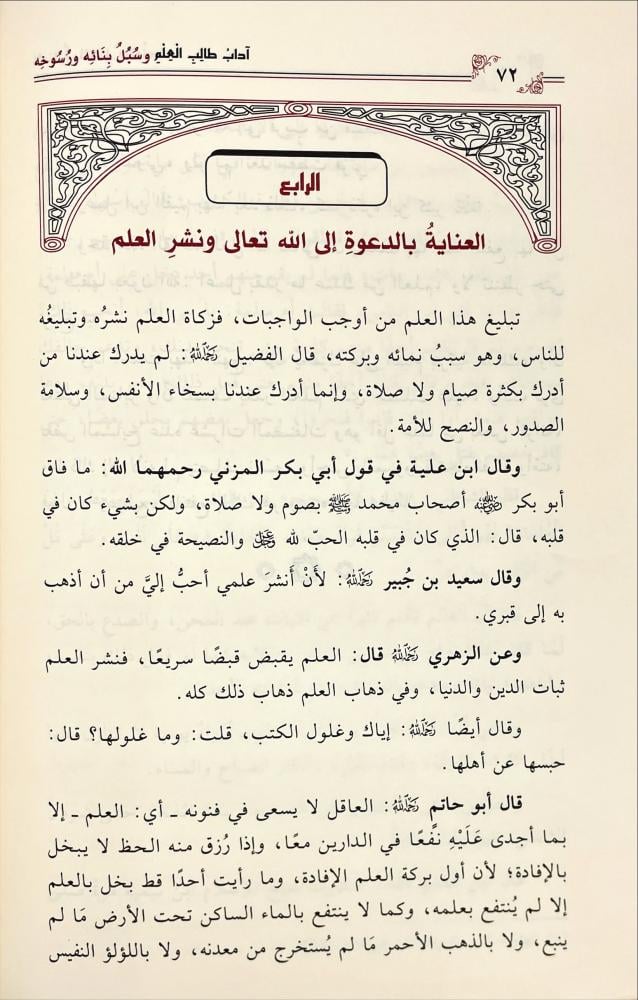 آداب طالب العلم وسبل بنائه ورسوخه
٧٢
الرابع
العنايةُ بالدعوةِ إلى الله تعالى ونشرِ العلم
تبليغ هذا العلم من أوجب الواجبات، فزكاة العلم نشرُه وتبليغُه
للناس، وهو سببُ نمائه وبركته، قال الفضيل رَحِمَهُ اللهُ: لم يدرك عندنا من
أدرك بكثرة صيام ولا صلاة، وإنما أدرك عندنا بسخاء الأنفس، وسلامة
الصدور، والنصح للأمة.
وقال ابن علية في قول أبي بكر المزني رحمهما الله: ما فاق
أبو بكر رَضِيَ اللهُ عَنْهُ أصحاب محمد ﷺ بصوم ولا صلاة، ولكن بشيء كان في
قلبه، قال: الذي كان في قلبه الحبّ لله عَزَّ وَجَلَّ والنصيحة في خلقه.
وقال سعيد بن جُبير رَحِمَهُ اللهُ: لأَنْ أَنشرَ علمي أحبُّ إليَّ من أن أذهب
به إلى قبري.
وعن الزهري رَحِمَهُ اللهُ قال: العلم يقبض قبضًا سريعًا، فنشر العلم
ثبات الدين والدنيا، وفي ذهاب العلم ذهاب ذلك كله.
وقال أيضًا رَحِمَهُ اللهُ: إياك وغلول الكتب، قلت: وما غلولها؟ قال:
حبسها عن أهلها.
قال أبو حاتم رَحِمَهُ اللهُ: العاقل لا يسعى في فنونه ـ أي: العلم ـ إلا
بما أجدى عَلَيْهِ نفعًا في الدارين معًا، وإذا رُزق منه الحظ لا يبخل
بالإفادة؛ لأن أول بركة العلم الإفادة، وما رأيت أحدًا قط بخل بالعلم
إلا لم يُنتفع بعلمه، وكما لا ينتفع بالماء الساكن تحت الأرض مَا لم
ينبع، ولا بالذهب الأحمر مَا لم يُستخرج من معدنه، ولا باللؤلؤ النفيس